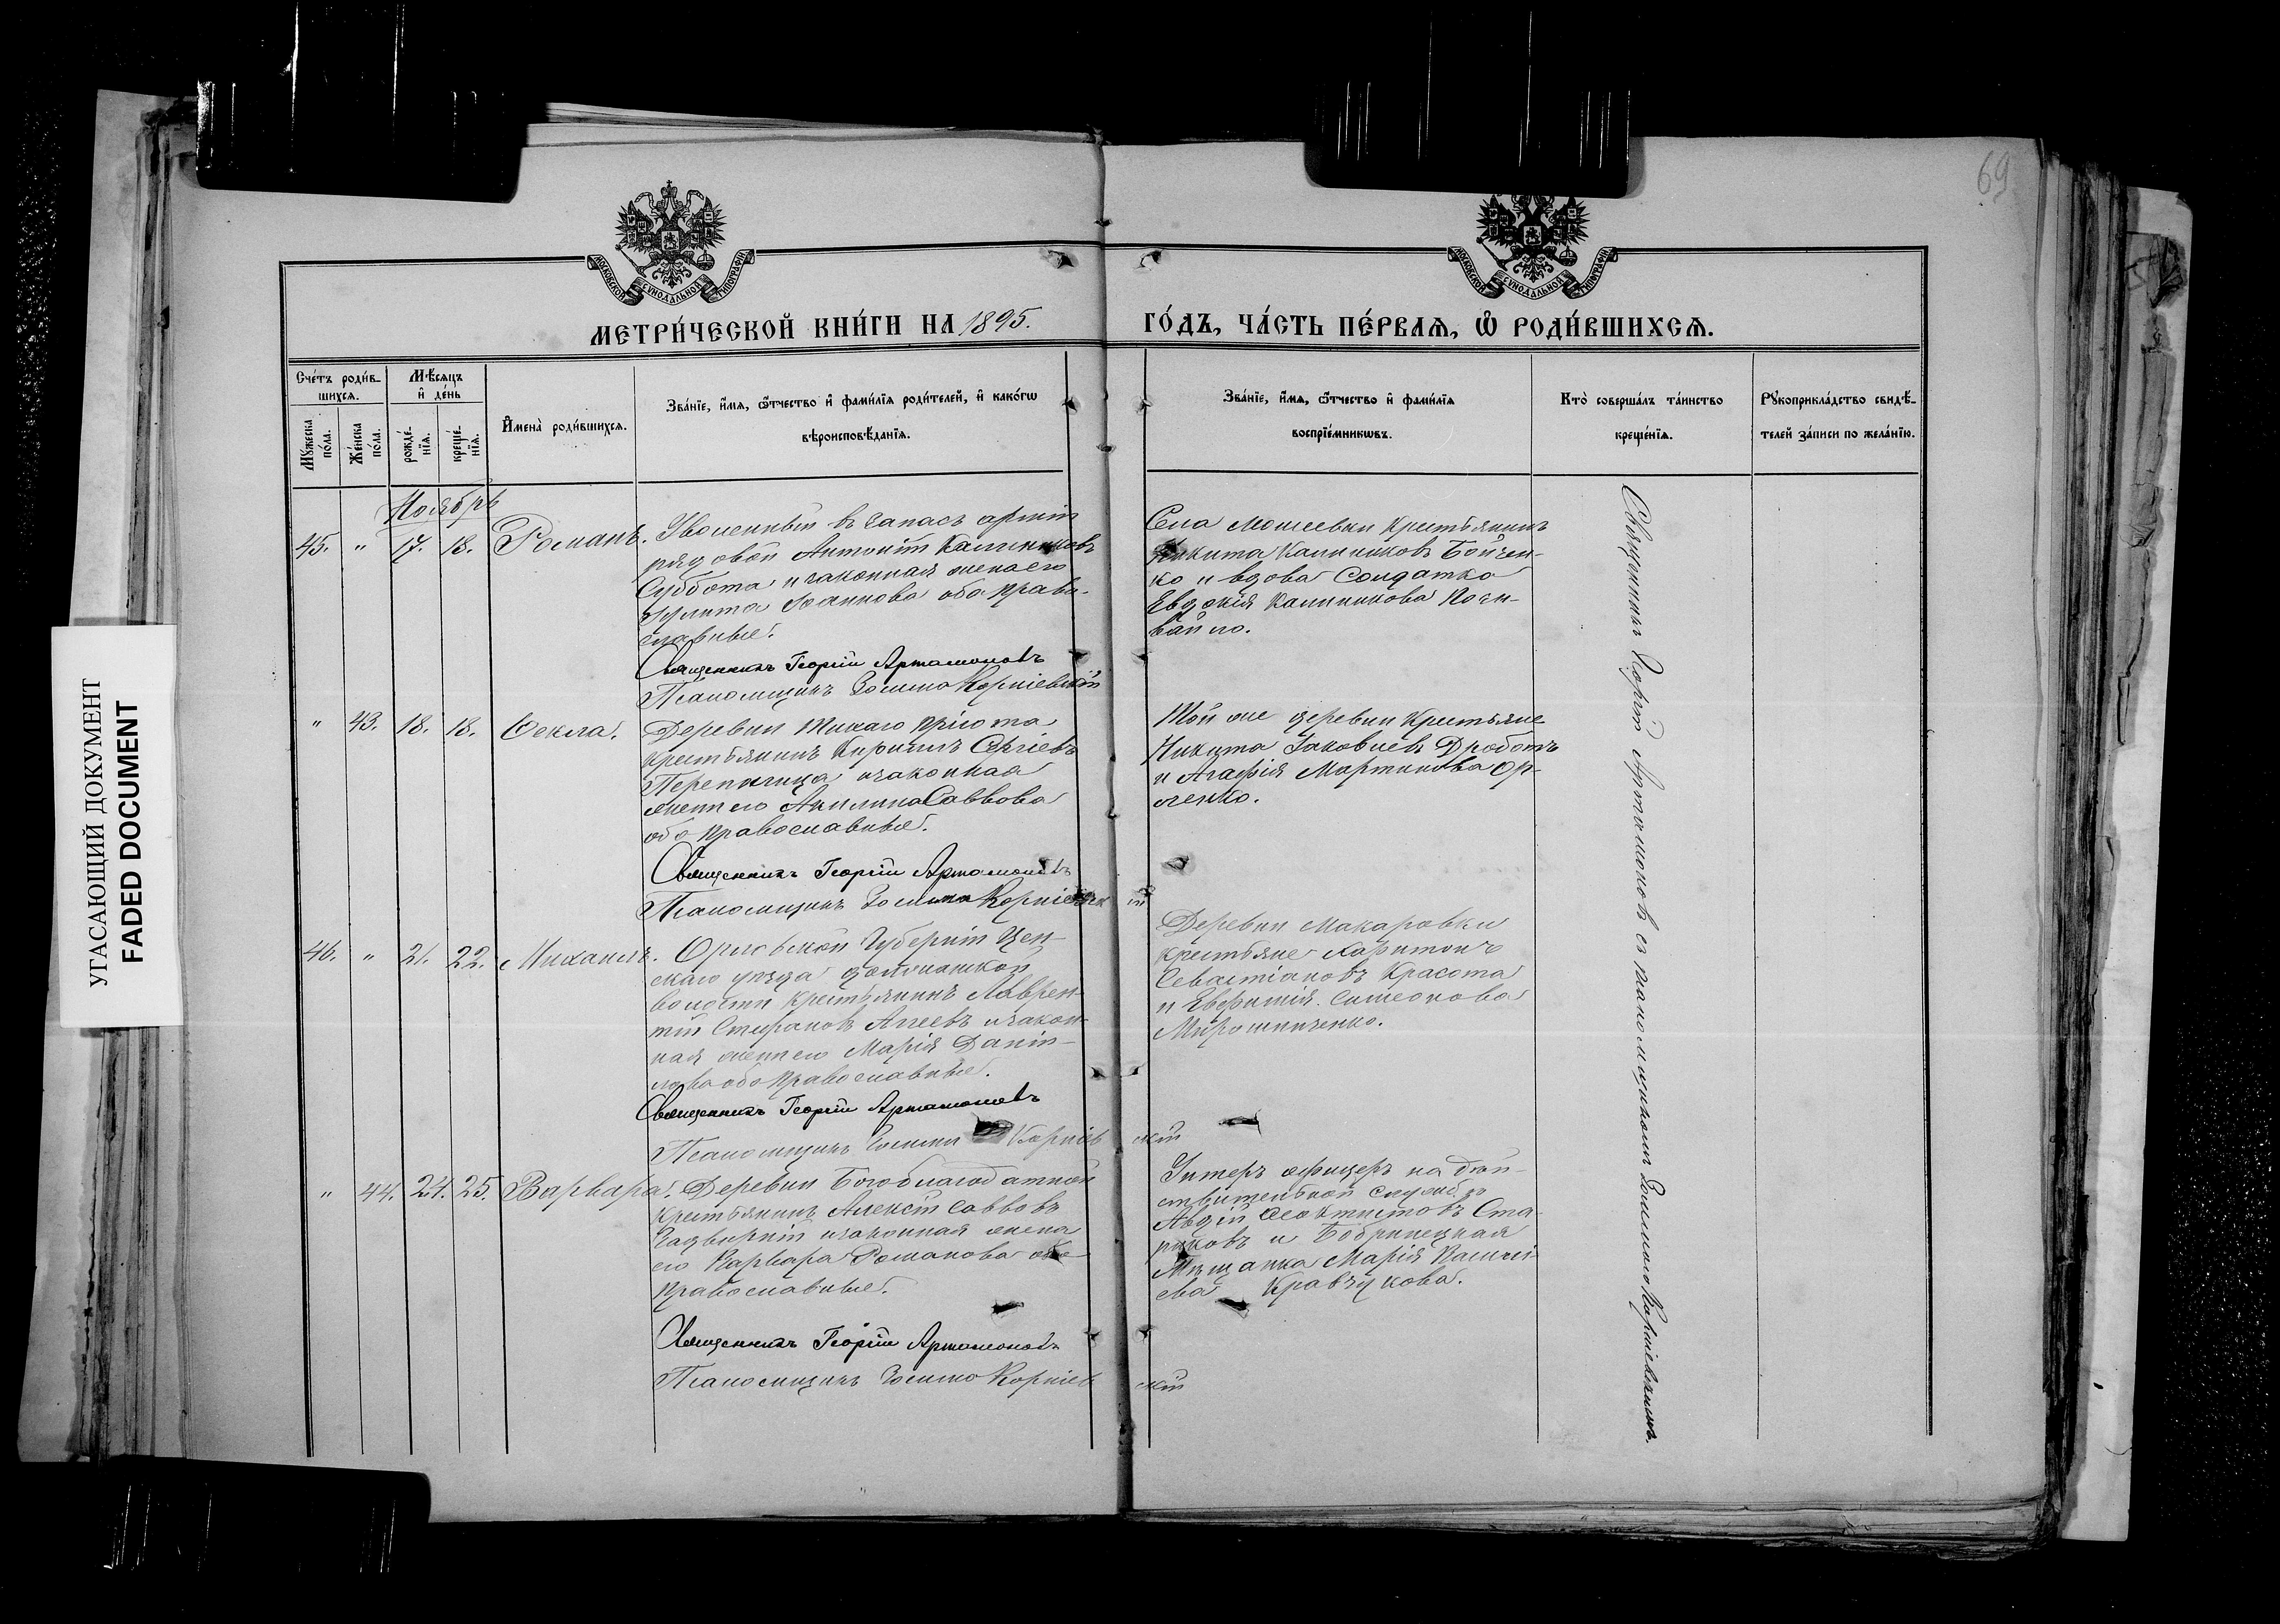 69
МОСКОВСКОЙ СѴНОДАЛЬНОЙ ТИПОГРАФІИ
МОСКОВСКОЙ СѴНОДАЛЬНОЙ ТИПОГРАФІИ
МЕТРИ́ЧЕСКОЙ КНИ́ГИ НА 1895.
ГО́ДЪ, ЧА́СТЬ ПЕ́РВАѦ, Ѽ РОДИ́ВШИХСѦ.
Сче́тъ роди́в-
шихсѧ.
Мѣ́сѧцъ
и҆ де́нь
Мꙋ́жеска
по́ла.
Же́нска
по́ла.
рожде́-
нїѧ.
креще́-
нїѧ.
И҆мена̀ роди́вшихсѧ.
Зва́нїе, и҆́мѧ, ѻ҆́тчество и҆ фами́лїѧ роди́телей, и҆ како́гѡ
вѣроисповѣ́данїѧ.
Зва́нїе, и҆́мѧ, ѻ҆́тчество и҆ фами́лїѧ
воспрїе́мникѡвъ.
Кто̀ соверша́лъ та́инство
креще́нїѧ.
Рꙋкоприкла́дство свидѣ́-
телей за́писи по жела́нїю.
Ноябрь
45. " 17. 18. Романъ.
Уволенный въ запасъ арміи
рядовой Антоній Калинниковъ
Суббота и законная жена его
Іоаннова оба право-
славные.
Священникъ Георгій Артамоновъ
Псаломщикъ Зосима Корніевскій
Села Мошеевки крестьянинъ
Никита Калинниковъ Бойчен-
ко и вдова солдатка
Евдокія Калинникова
" 43. 18. 18. Ѳекла.
Деревни
крестьянинъ Кириллъ Сергіевъ
Перепелица и законная
жена его Акилина Саввова
оба православные.
Священникъ Георгій Артамоновъ
Псаломщикъ Зосима Корніевскій
Той же деревни крестьяне
Никита Іаковлевъ Дроботъ
и Агафія Мартинова Ор-
ленко.
46. " 21. 22. Михаилъ.
Орловской Губерніи
скаго уѣзда
волости крестьянинъ Лаврен-
тій Стефановъ Агеевъ и закон-
ная жена его Марія Даніи-
лова оба православные.
Священникъ Георгій Артамоновъ
Псаломщикъ Зосима Корніевскій
Деревни Макаровки
крестьяне Харитонъ
Севастіановъ Красота
и Евфимія Симеонова
Мирошниченко.
" 44. 24. 25. Варвара.
Деревни Богоблагодатной
крестьянинъ Алексій Саввовъ
и законная жена
его Варвара Романова оба
православные.
Священникъ Георгій Артамоновъ
Псаломщикъ Зосима Корніевскій
Унтеръ офицеръ на дѣй-
ствительной службѣ
Авдій Ѳеоктистовъ Ста-
риковъ и Бобринецкая
Мѣщанка Марія
Кравчукова.
Священникъ Георгій Артамоновъ съ псаломщикомъ Зосимою Корніевскимъ.
УГАСАЮЩИЙ ДОКУМЕНТ
FADED DOCUMENT